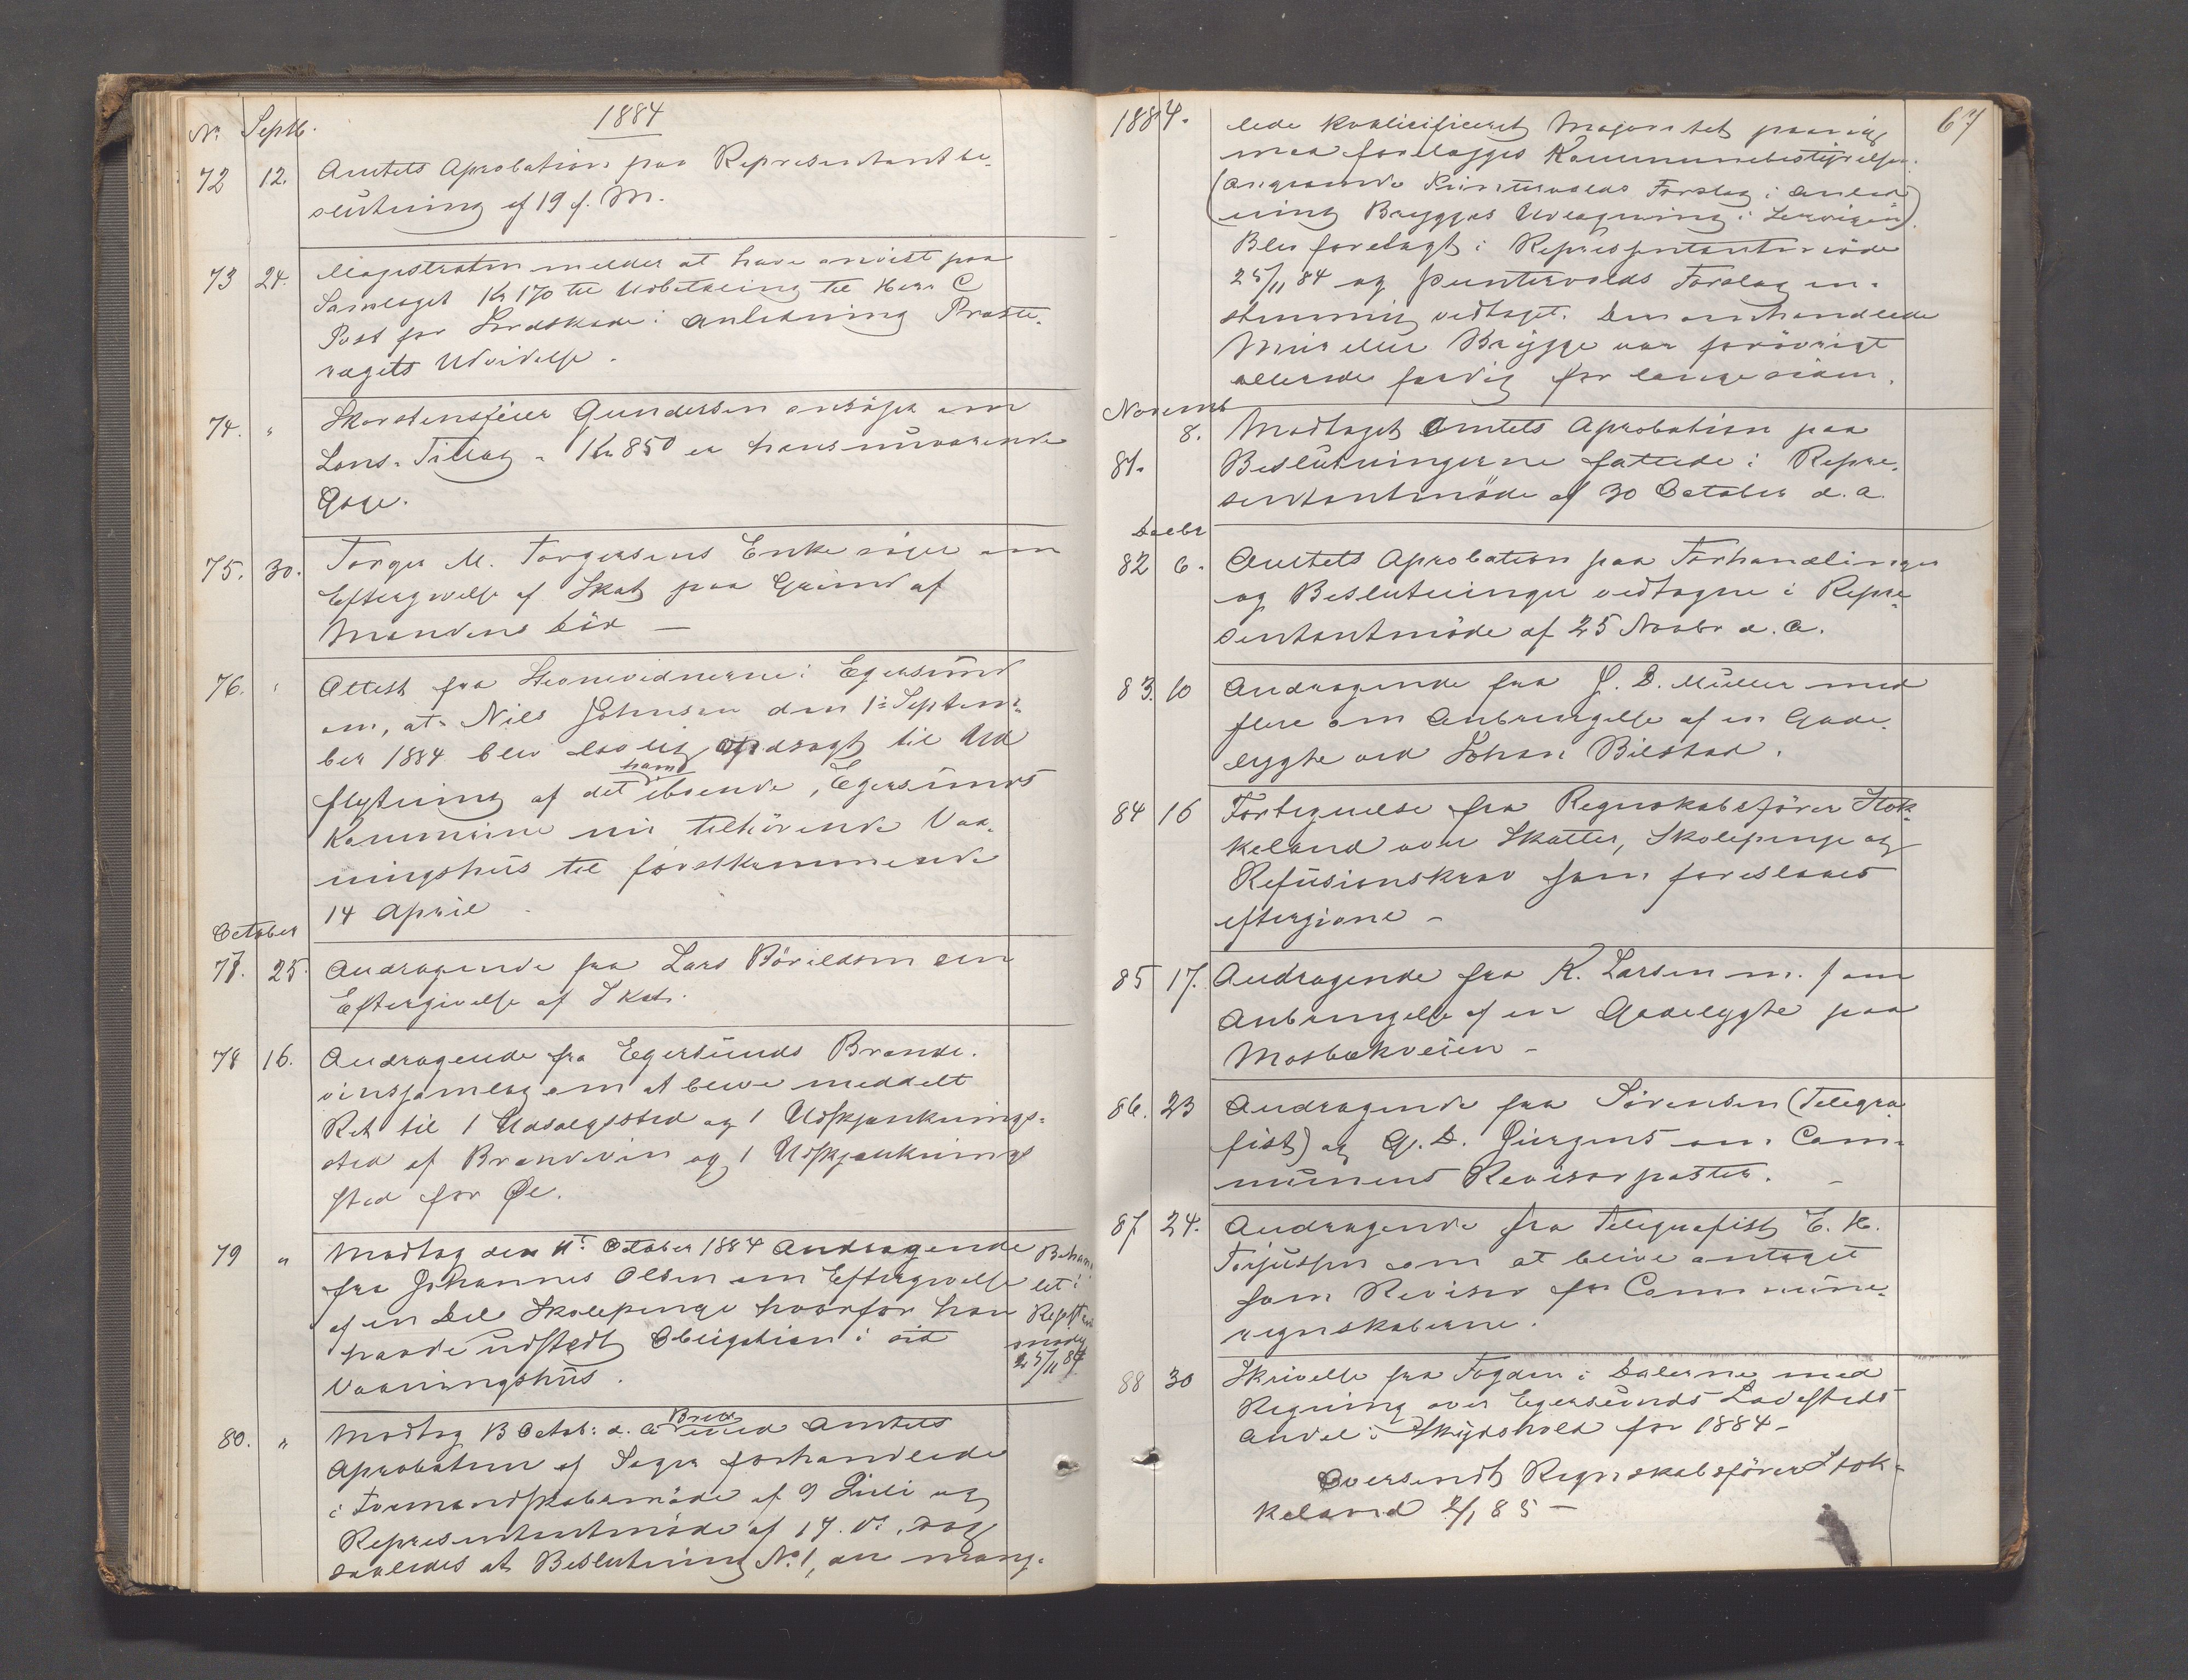 Nr. Septb. 1884
72 12. Amtets Aprobation paa Representantbe-
slutning af 19 f. M.
73 24. Magistraten melder at have anvist paa
Samlaget Kr 170 til Udbetaling til Herr C
Post for Jordskade i Anledning Præste-
vægets Udvidelse.
74. " Skorstensfeier Gundersen ansøger om
Løns-Tillæg - Kr 850 er hans nuværende
Gage.
75. 30. Torger M. Torgersens Enke søger om
Eftergivelse af Skat paa Grund af
Mandens død —
76. " Attest fra Stevnevidnerne i Egersund
om, at Nils Johnsen den 1ste Septem-
ber 1884 blev lovlig opsagt til Ud
flytning af det af ham iboende, Egersunds
Kommune nu tilhörende Vaa-
ningshus til förstkommende
14 April
October
77. 25. Andragende fra Lars Böveldsen om
Eftergivelse af Skat.
78 16. Andragende fra Egersunds Brænde-
vinssamlag om at blive meddelt
Ret til 1 Udsalgssted og 1 Udskjænknings-
sted af Brændevin og 1 Udskjænknings
sted for Øl.
79 " Modtog den 11te October 1884 Andragende
fra Johannes Olsen om Eftergivelse
af en Del Skolepenge hvorfor han
havde udstedt Obligation i sit
Vaaningshus.
Behand-
let i
Repst
møde
25/11 84
80. " Modtog 13 Octob: d. A. med Brev Amtets
Aprobation af Sager forhandlede
i Formandskabsmöde af 9 Juli og
Representantmöde af 17. ds. dog
saaledes at Beslutning No 1, om mang-
1884. 67
lede kvalificificeret Majoritet paany
maa forelægges Kommunebestyrelsen.
(angaaende Puntervolds Forslag i Anled-
ning Brygges Udlægning i Lervigen).
Blev forelagt i Representantmöde
25/11 84 og Puntervolds Forslag en-
stemmig vedtaget. Den omhandlede
Mur eller Brygge var forövrigt
allerede færdig for længe siden.
Novemb
81. 8. Modtaget Amtets Aprobation paa
Beslutningerne fattede i Repre-
sentantmöde af 30 October d. a.
Decbr
82 6. Amtets Aprobation paa Forhandlinger
og Beslutninger vedtagne i Repre-
sentantmöde af 25 Novbr d. A.
83. 10 Andragende fra J. D. Müller med
flere om Anbringelse af en Gade-
lygte ved Johan Bilstad.
84 16 Fortegnelse fra Regnskabsförer Stok-
keland over Skatter, Skolepenge og
Refusionskrav som foreslaaes
eftergivne -
85 17. Andragende fra K. Larsen m. f om
Anbringelse af en Gadelygte paa
Mosbækveien -
86. 23 Andragende fra Sörensen (Telegra-
fist) og G. D. Jürgens om Com-
munens Revisorposter. -
87 24. Andragende fra Telegrafist E. H.
Torjussen om at blive antaget
som Revisor for Commune-
regnskaberne.
88 30 Skrivelse fra Fogden i Dalerne med
Regning over Egersunds Ladesteds
Andel i Skydshold for 1884 -
Oversendt Regnskabsförer Stok-
keland 2/1 85 —